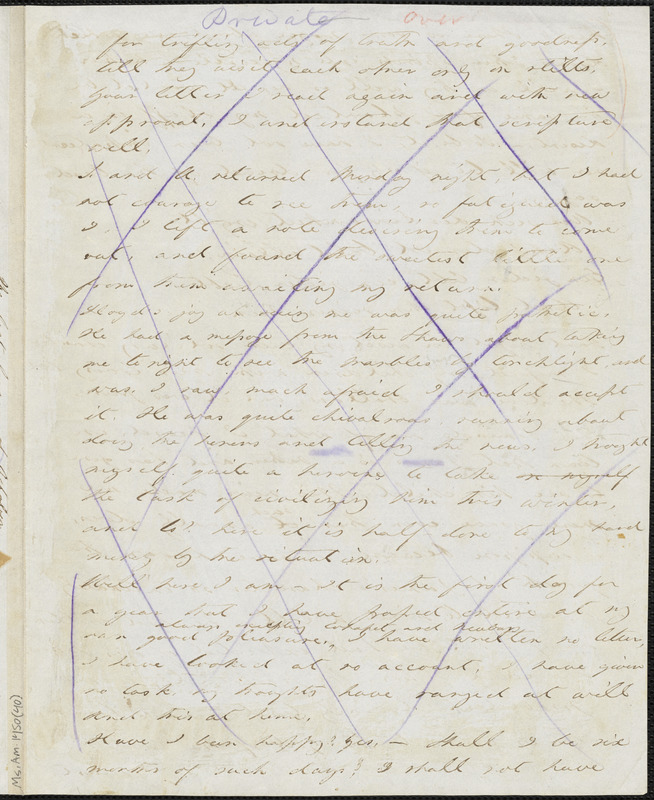 Private over
for trifling acts of truth and goodness,
till they visit each other only on stilts.
Your letter I read again and with new
approval, I understand that scripture
well.
S and A returned Thursday night, but I had
not courage to see them, so fatigued was
I. I left a note desiring them to come
out, and found the sweetest little one
from them awaiting my return.
Lloyd's joy at seeing me was quite pathetic.
He had a message from the Shaws about taking
me tonight to see the marbles by torchlight, and
was, I saw, much afraid I should accept
it. He was quite chivalrous, running about
doing the and telling the news. I thought
myself quite a heroine to take on myself
the task of civilizing him this winter,
and lo! here it is half done to my hand
merely by the
Well here I am – It is the first day for
a year that I have passed entire at my
always excepting Concord and Newbury
own good pleasure. I have written no letter,
I have looked at no account, I have given
no task my thoughts have ranged at will
and this at home.
Have I been happy? Yes. – Shall I be six
months of such days? I shall not have
Ms. Am. 1450(40)